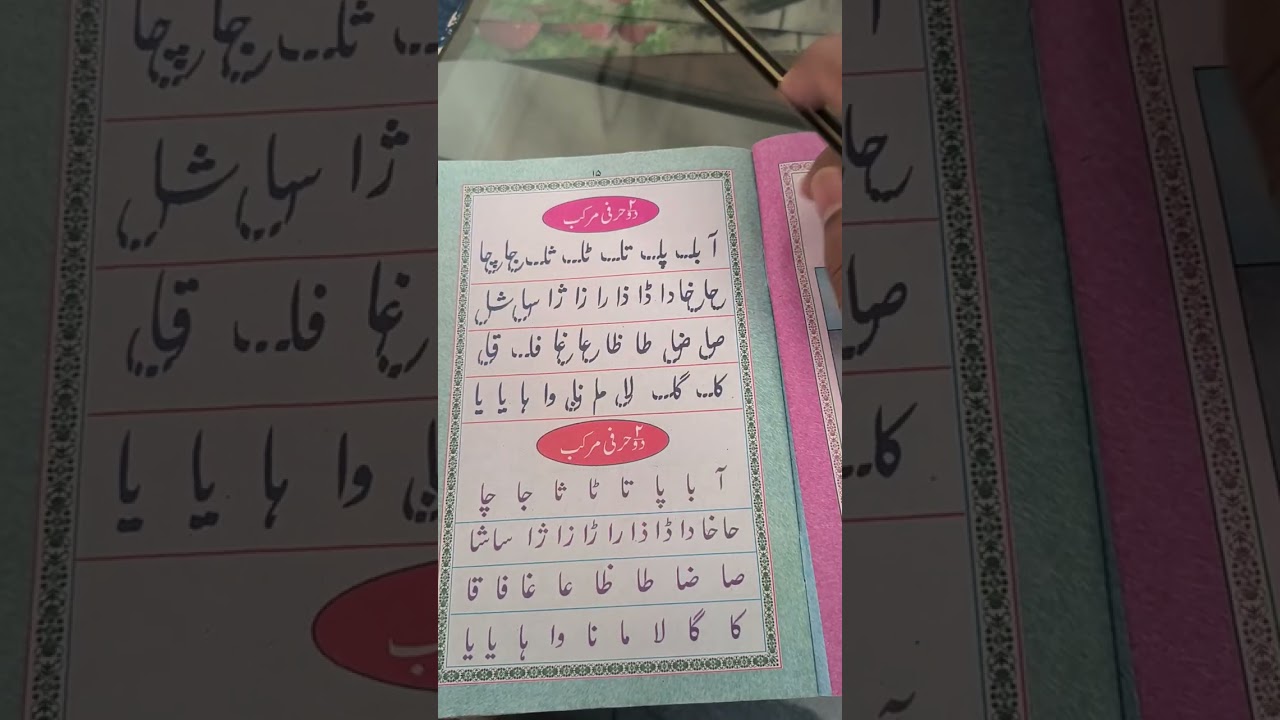 ۱۵
دو حرفی مرکب
آ با پا تا ٹا ثا جا چا
حا خا دا ڈا ذا را زا ژا سا شا
صا ضا طا ظا عا غا فا قا
کا گا لا ما نا وا ہا یا یا
دو حرفی مرکب
آ با پا تا ٹا ثا جا چا
حا خا دا ڈا ذا را ڑا زا ژا سا شا
صا ضا طا ظا عا غا فا قا
کا گا لا ما نا وا ہا یا یا